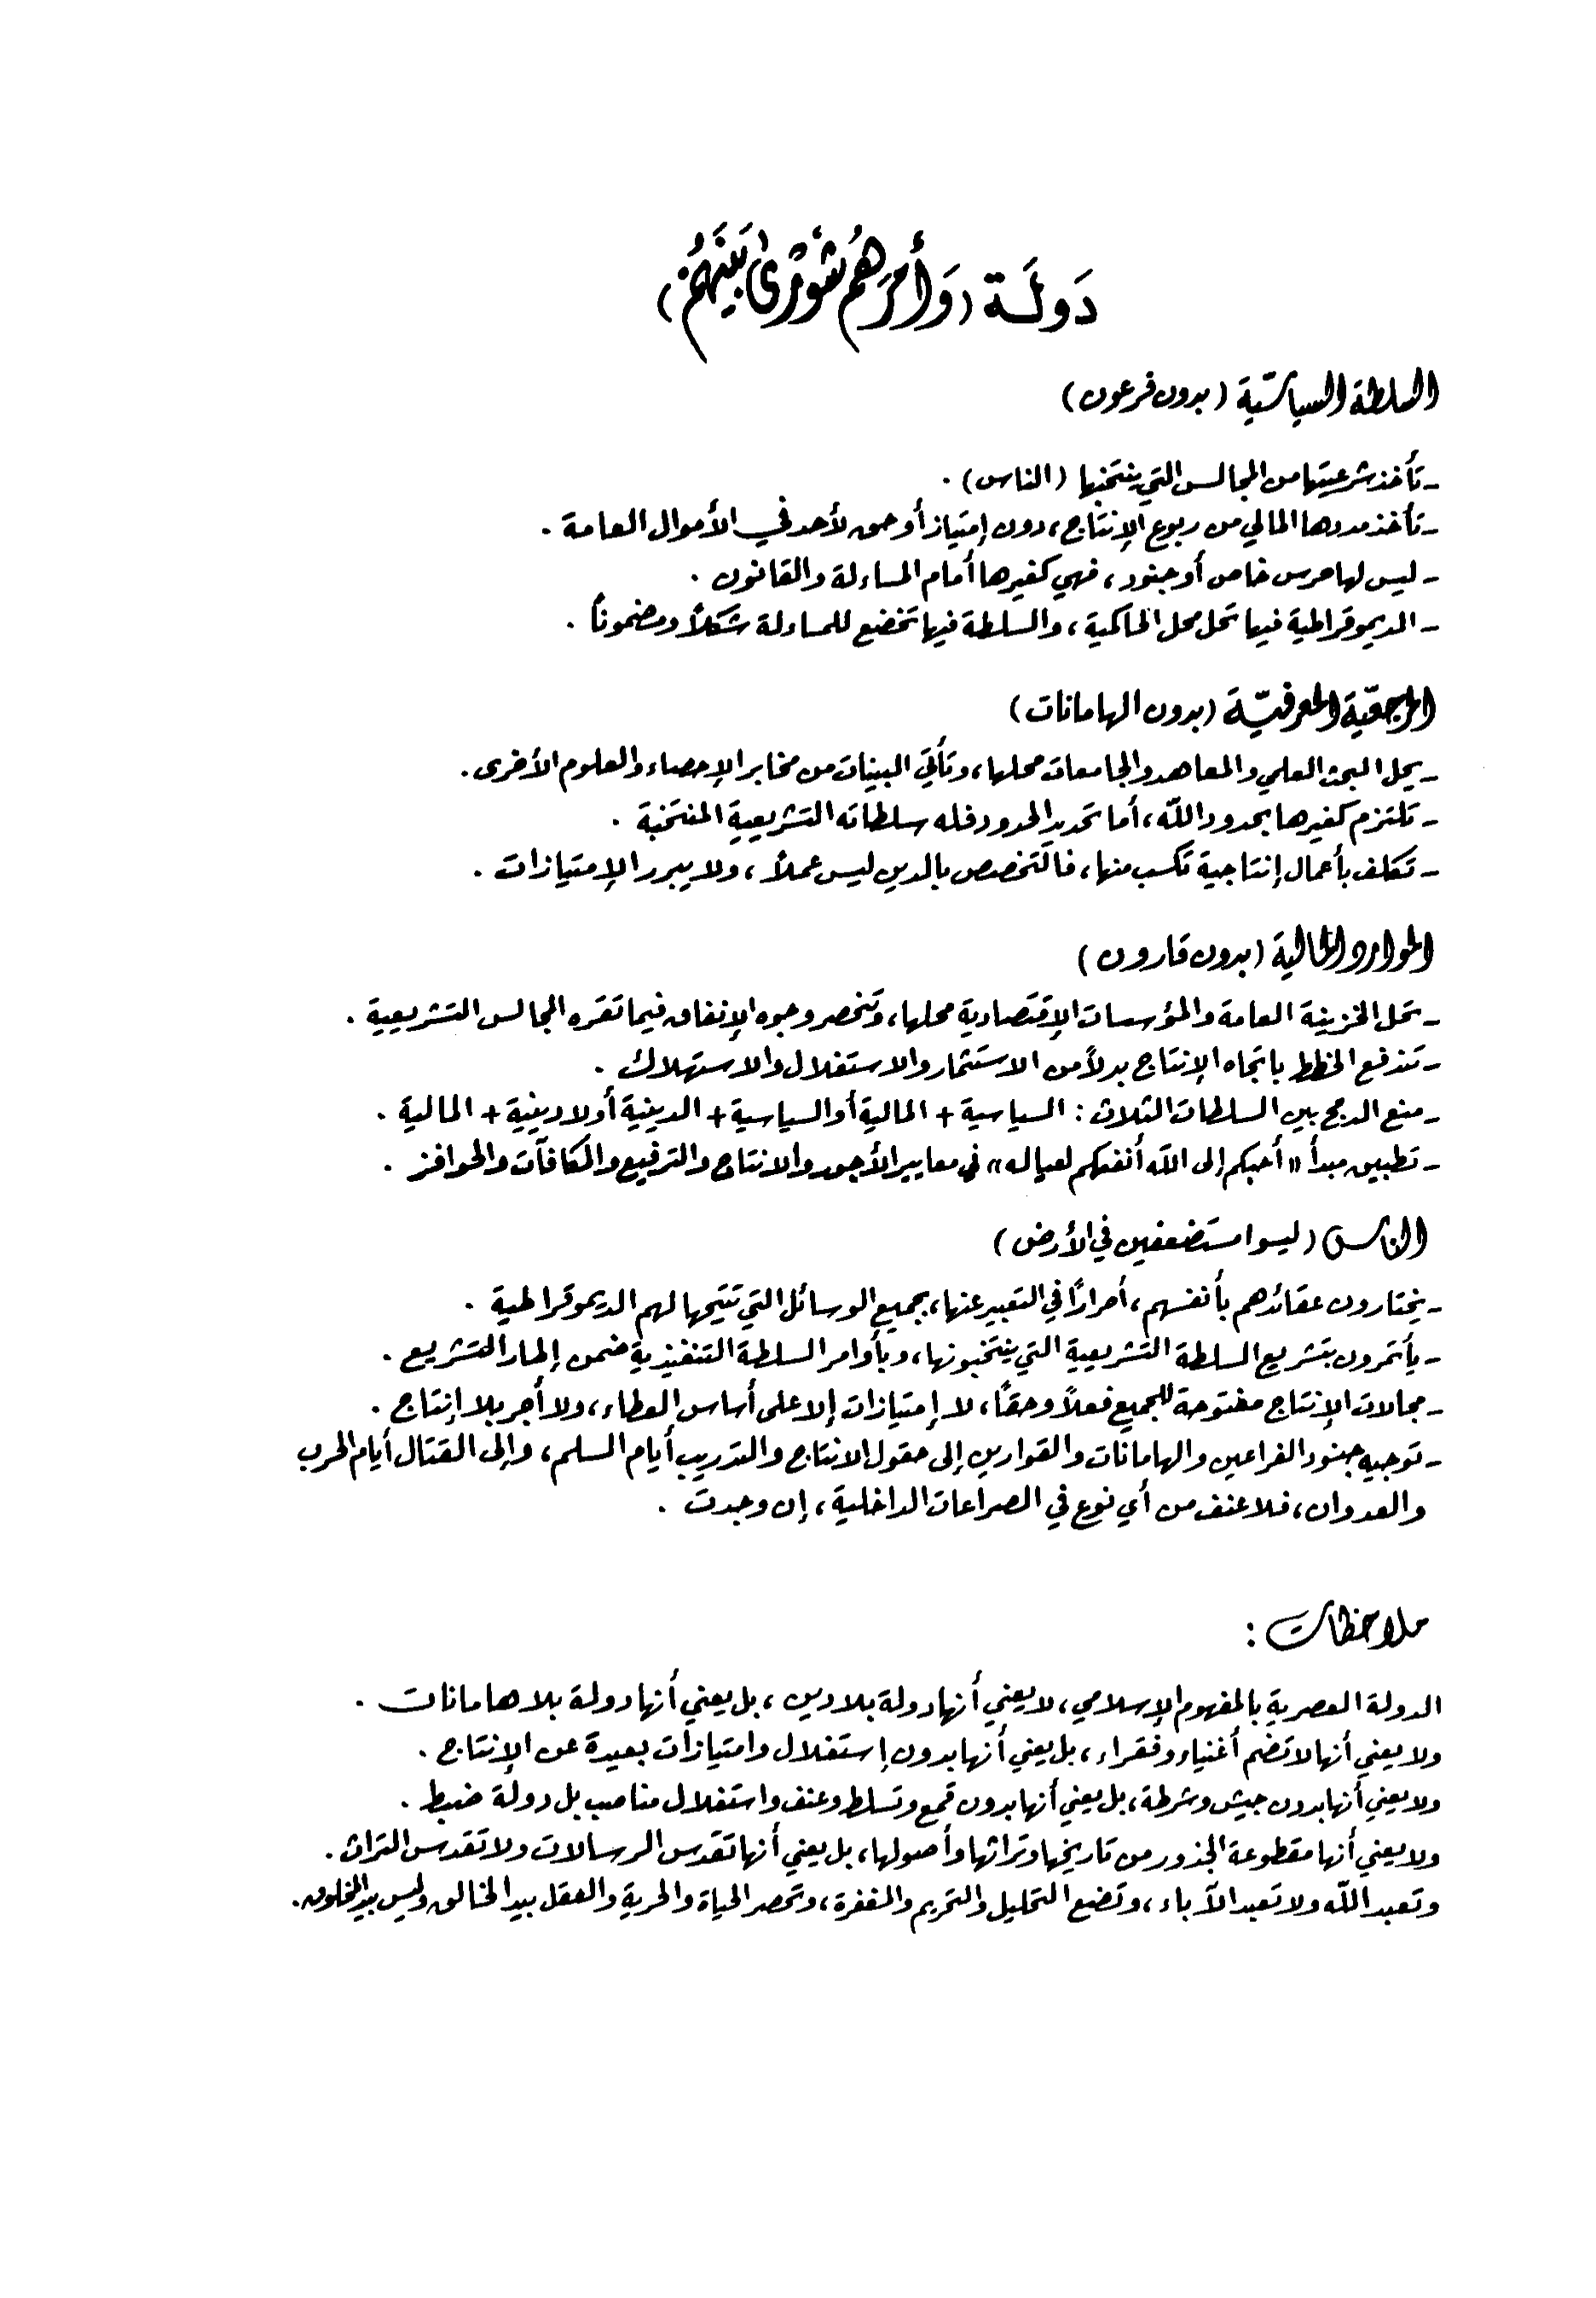 دَولَة (وَأمرَهُم شُورَىٰ بَينَهُم)
السلطة السياسيّة (بدون فرعون)
- تأخذ شرعيتها من المجالس التي ينتخبها (الناس).
- تأخذ مددها المالي من ريوع الإنتاج، دون إمتياز أو حق لأحد في الأموال العامة.
- ليس لها حرس خاص أو جنود، فهي كغيرها أمام المساءلة والقانون.
- الديموقراطية فيها تحل محل الحاكمية، والسلطة فيها تخضع للمساءلة شكلاً ومضموناً.
المرجعيّة المعرفيّة (بدون الهامانات)
- يحل البحث العلمي والمعاهد والجامعات محلها، وتأتي البينات من مخابر الإحصاء والعلوم الأخرى.
- تلتزم كغيرها بحدود اللّه، أما تحديد الحدود فله سلطاته التشريعية المنتخبة.
- تكلف بأعمال إنتاجية تكسب منها، فالتخصص بالدين ليس عملاً، ولا يبرر الإمتيازات.
الموارد المالية (بدون قارون)
- تحل الخزينة العامة والمؤسسات الإقتصادية محلها، وتنحصر وجوه الإنفاق فيما تقره المجالس التشريعية.
- تندفع الخطط باتجاه الإنتاج بدلاً من الاستثمار والاستغلال والاستهلاك.
- منع الدمج بين السلطات الثلاث: السياسية + المالية أو السياسية + الدينية أو لادينية + المالية.
- تطبيق مبدأ «أحبكم إلى اللّه أنفعكم لعياله» في معايير الأجور والانتاج والترفيع والمكافآت والحوافز.
الناس (ليسوا مستضعفين في الأرض)
- يختارون عقائدهم بأنفسهم، أحرارًا في التعبير عنها، بجميع الوسائل التي تتيحها لهم الديموقراطية.
- يأتمرون بتشريع السلطة التشريعية التي ينتخبونها، وبأوامر السلطة التنفيذية ضمن إطار التشريع.
- مجالات الإنتاج مفتوحة للجميع فعلاً وحقاً، لا إمتيازات إلا على أساس العطاء، ولا أجر بلا إنتاج.
- توجيه جنود الفراعين والهامانات والقوارين إلى حقول الانتاج والتدريب أيام السلم، وإلى القتال أيام الحرب
والعدوان، فلا عنف من أي نوع في الصراعات الداخلية، إن وجدت.
ملاحظات:
الدولة العصرية بالمفهوم الإسلامي، لا يعني أنها دولة بلا دين، بل يعني أنها دولة بلا هامانات.
ولا يعني أنها لا تضم أغنياء وفقراء، بل يعني أنها بدون إستغلال وامتيازات بعيدة عن الإنتاج.
ولا يعني أنها بدون جيش وشرطة، بل يعني أنها بدون قمع وتسلط وعنف واستغلال مناصب بل دولة ضبط.
ولا يعني أنها مقطوعة الجذور من تاريخها وتراثها وأصولها، بل يعني أنها تقدس الرسالات ولا تقدس التراث.
وتعبد اللّه ولا تعبد الآباء، وتضع التحليل والتحريم والمغفرة، وتحصر الحياة والحرية والعقل بيد الخالق وليس بيد المخلوق.